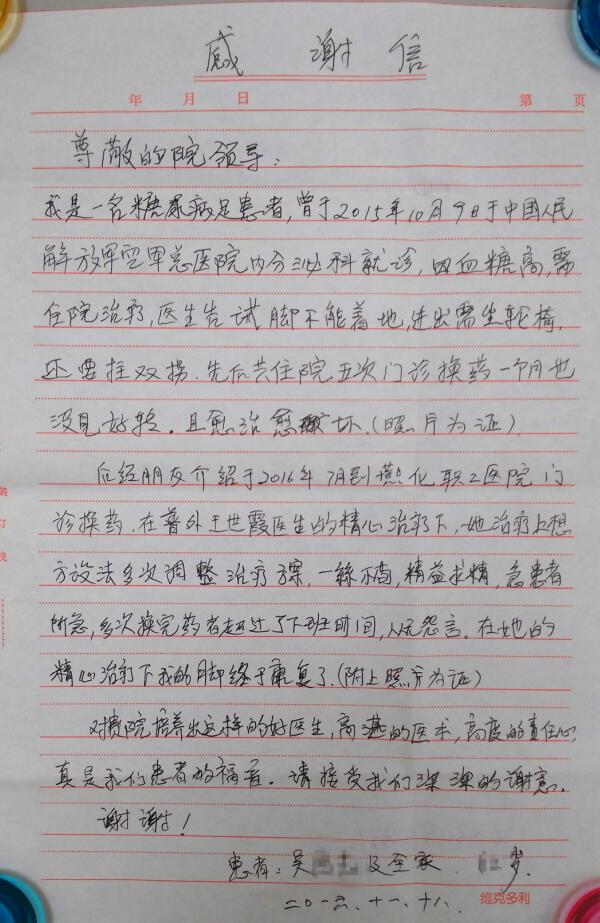 感谢信
年 月 日 第 页
尊敬的院领导:
我是一名糖尿病足患者,曾于2015年10月9日于中国人民
解放军空军总医院内分泌科就诊,因血糖高,需
住院治疗,医生告试脚不能着地,进出需坐轮椅,
还要拄双拐.先后共住院五次门诊换药一个月也
没见好转。且愈治愈坏.(照片为证).
后经朋友介绍于2016年7月到燕化职工医院门
诊换药.在普外王世霞医生的精心治疗下,她治疗上想
方设法多次调整治疗方案,一丝不苟,精益求精,急患者
所急,多次换完药者超过了下班时间,从无怨言.在她的
精心治疗下我的脚终于康复了.(附上照片为证)
对贵院培养出这样的好医生,高湛的医术,高度的责任心,
真是我们患者的福音。请接受我们深深的谢意.
谢谢!
患者:吴 及全家 岁.
二〇一六、十一、十八、
维克多利
装
订
线